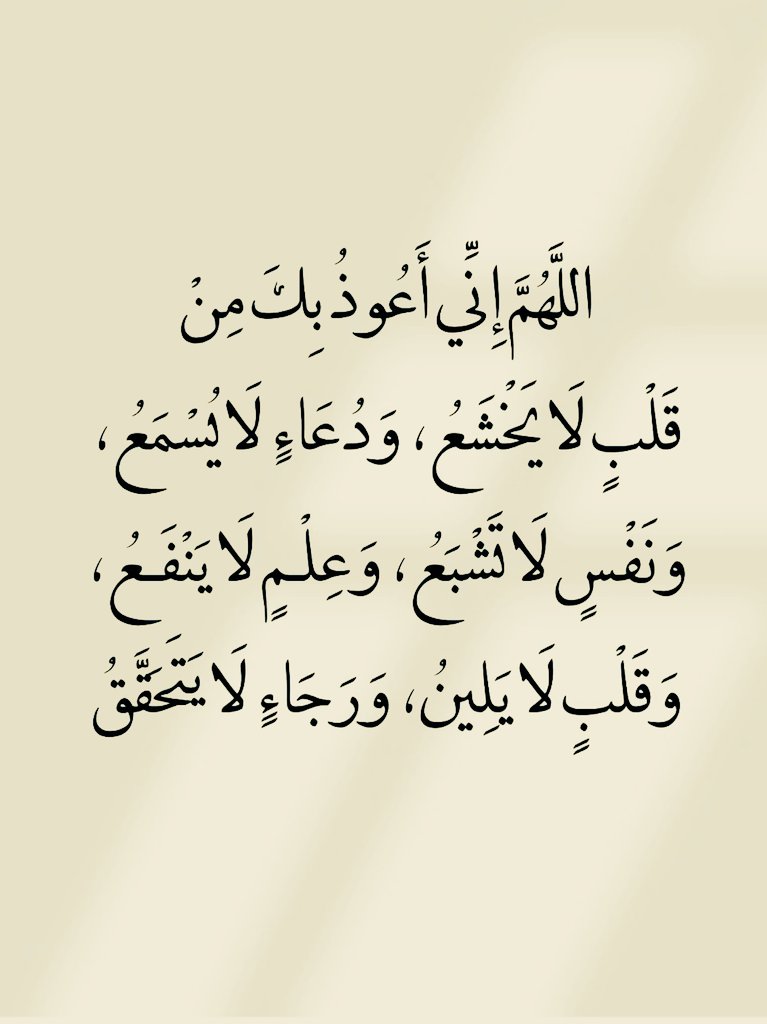 اللَّهُمَّ إِنِّي أَعُوذُ بِكَ مِنْ
قَلْبٍ لَا يَخْشَعُ، وَدُعَاءٍ لَا يُسْمَعُ،
وَنَفْسٍ لَا تَشْبَعُ، وَعِلْمٍ لَا يَنْفَعُ،
وَقَلْبٍ لَا يَلِينُ، وَرَجَاءٍ لَا يَتَحَقَّقُ